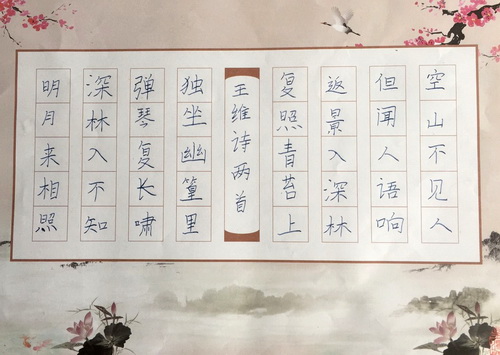 空山不见人
但闻人语响
返景入深林
复照青苔上
王维诗两首
独坐幽篁里
弹琴复长啸
深林人不知
明月来相照